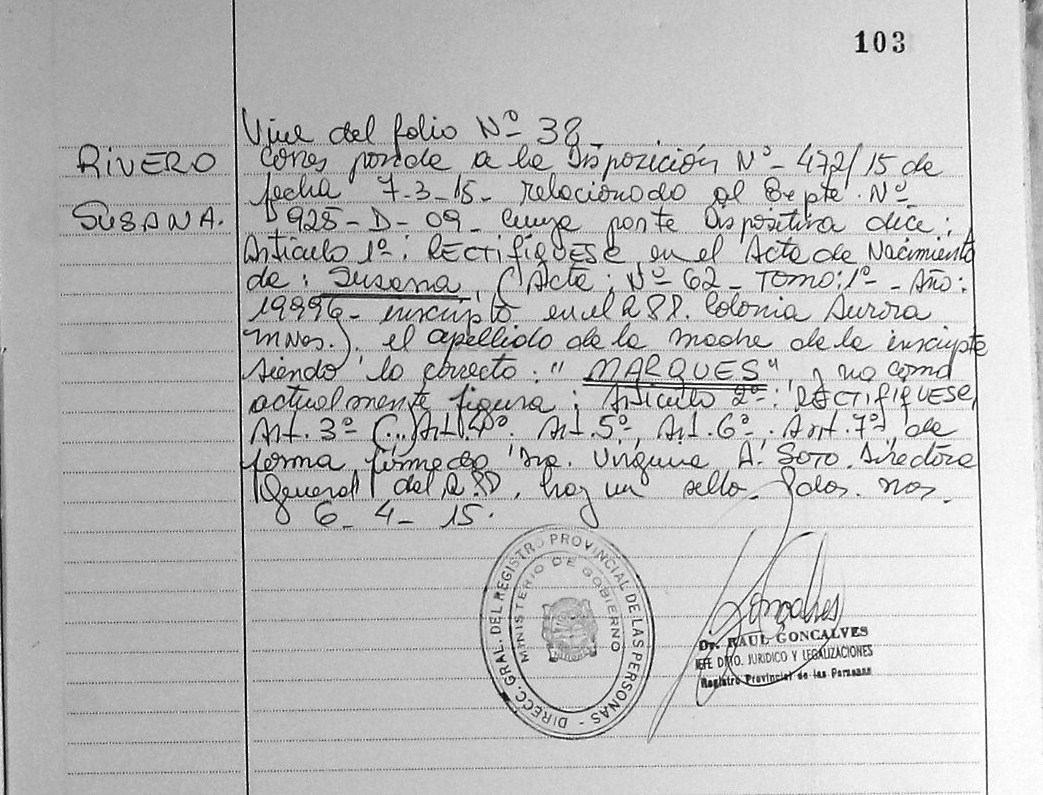 103
Viene del folio Nº 38
RIVERO
corresponde a la Disposición Nº 472/15 de
fecha 7-3-15- relacionado al Expte. Nº
SUSANA.
925-D-09- cuya parte Dispositiva dice:
Artículo 1º: RECTIFÍQUESE en el Acta de Nacimiento
de: Susana, (Acta: Nº 62- Tomo: 1º - Año:
inscripto en el Colonia Aurora
Mnes.). el apellido de la madre de la inscripta
siendo lo correcto: "MARQUES" y no como
actualmente figura; Artículo 2º: RECTIFIQUESE,
Art. 3º (...) Art. 4º. Art. 5º, Art. 6º. Art. 7º, de
forma, firmado Dra. A. Soto. Directora
General del hay un sello. Pdas. Mnes.
6-4-15.
DIRECC. GRAL. DEL REGISTRO PROVINCIAL DE LAS PERSONAS -
MINISTERIO DE GOBIERNO
Goncalves
Dr. RAUL GONCALVES
JEFE DPTO. JURIDICO Y LEGALIZACIONES
Registro Provincial de las Personas